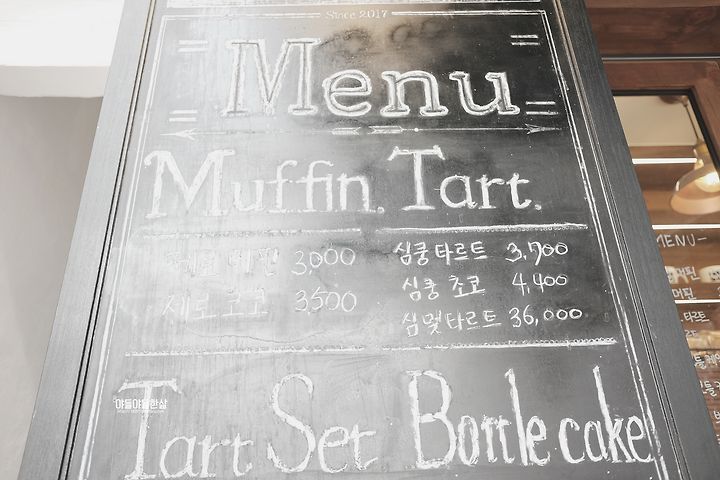 Since 2017
Menu
Muffin. Tart.
제로머핀 3,000
제로초코 3,500
심쿵타르트 3,700
심쿵초코 4,400
심멎타르트 36,000
Tart Set Bottle cake
야들야들한살
MENU
머핀
타르트